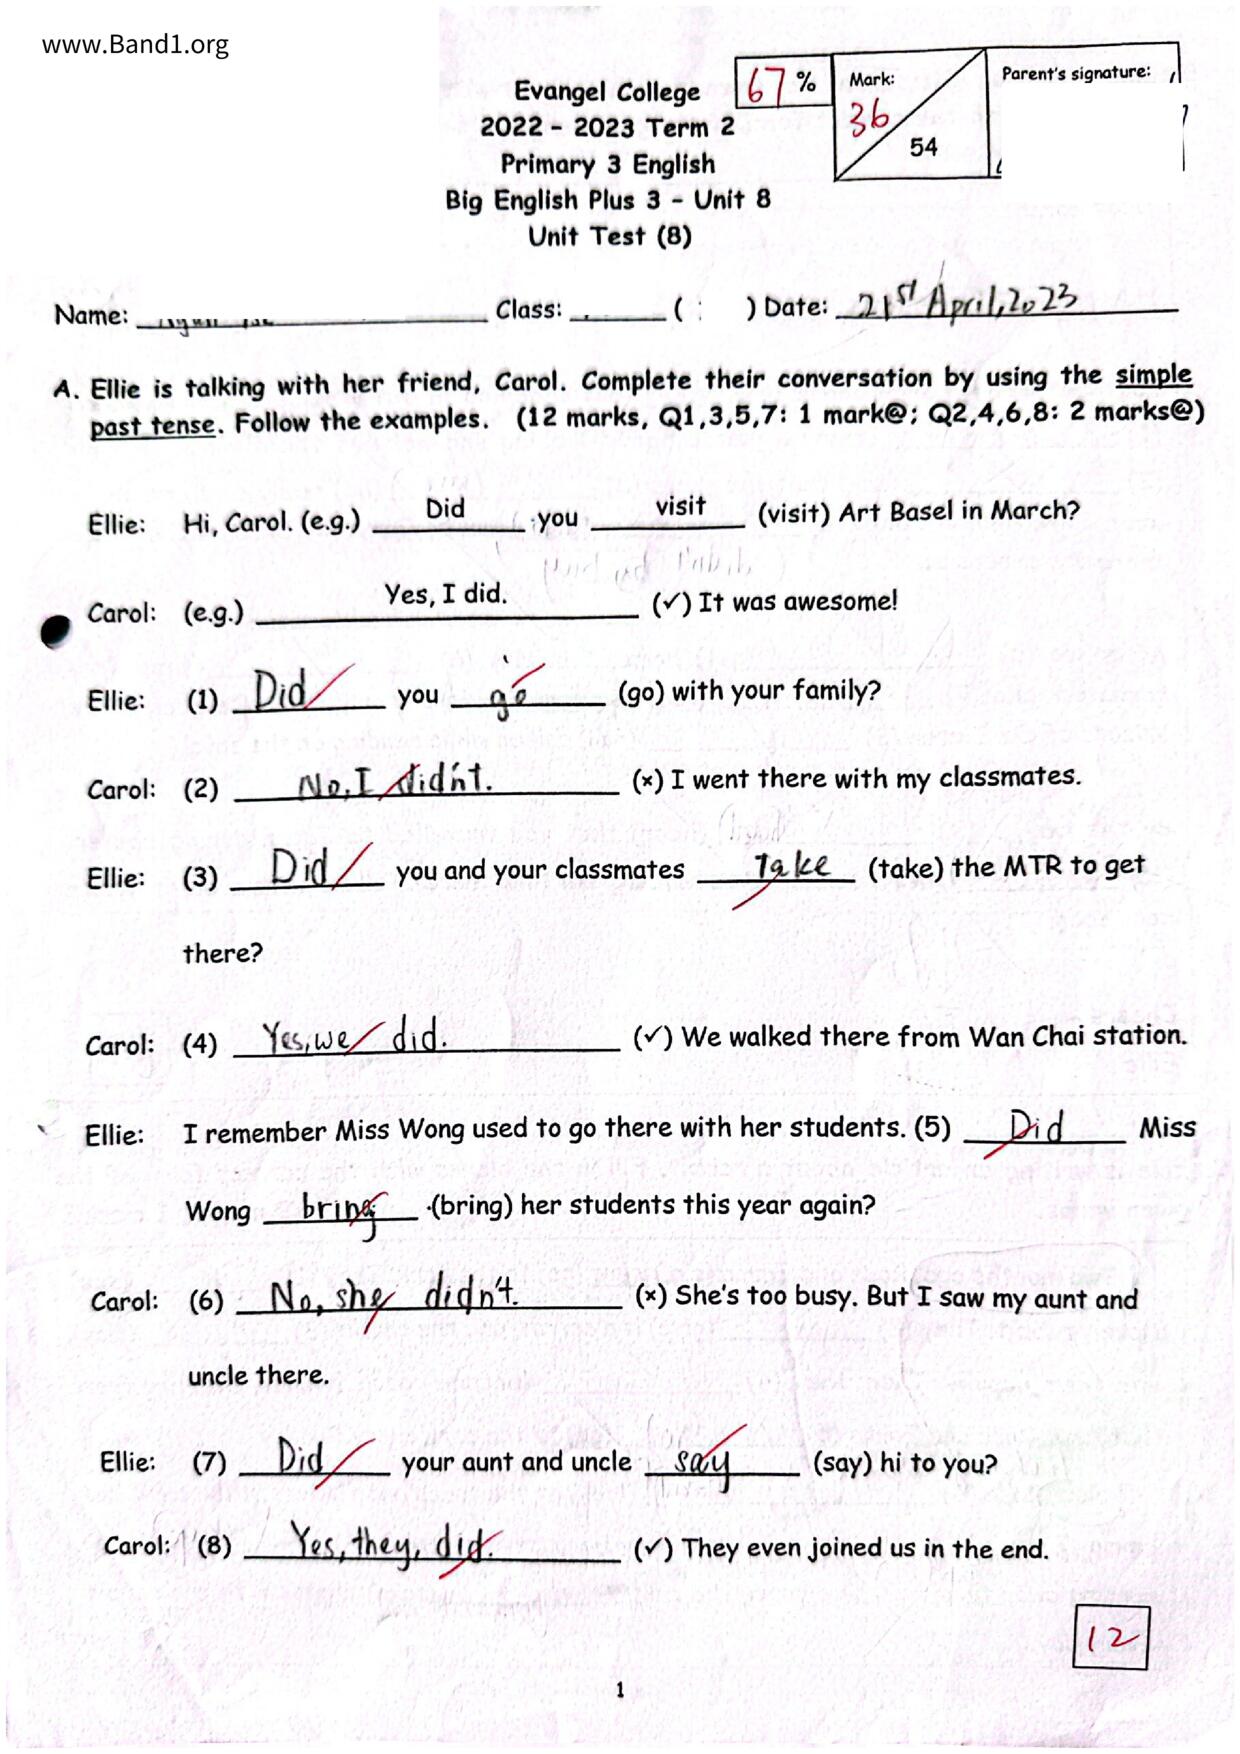 www.Band1.org
67 %
Mark:
36
54
Parent's signature:
Evangel College
2022 - 2023 Term 2
Primary 3 English
Big English Plus 3 - Unit 8
Unit Test (8)
Name: Class: ( ) Date: 21st April, 2023
A. Ellie is talking with her friend, Carol. Complete their conversation by using the simple
past tense. Follow the examples. (12 marks, Q1,3,5,7: 1 mark@; Q2,4,6,8: 2 marks@)
Ellie: Hi, Carol. (e.g.) Did you visit (visit) Art Basel in March?
Carol: (e.g.) Yes, I did. (✓) It was awesome!
Ellie: (1) Did you go (go) with your family?
Carol: (2) No, I didn't. (×) I went there with my classmates.
Ellie: (3) Did you and your classmates Take (take) the MTR to get
there?
Carol: (4) Yes, we did. (✓) We walked there from Wan Chai station.
Ellie: I remember Miss Wong used to go there with her students. (5) Did Miss
Wong bring (bring) her students this year again?
Carol: (6) No, she didn't. (×) She's too busy. But I saw my aunt and
uncle there.
Ellie: (7) Did your aunt and uncle say (say) hi to you?
Carol: (8) Yes, they, did. (✓) They even joined us in the end.
12
1